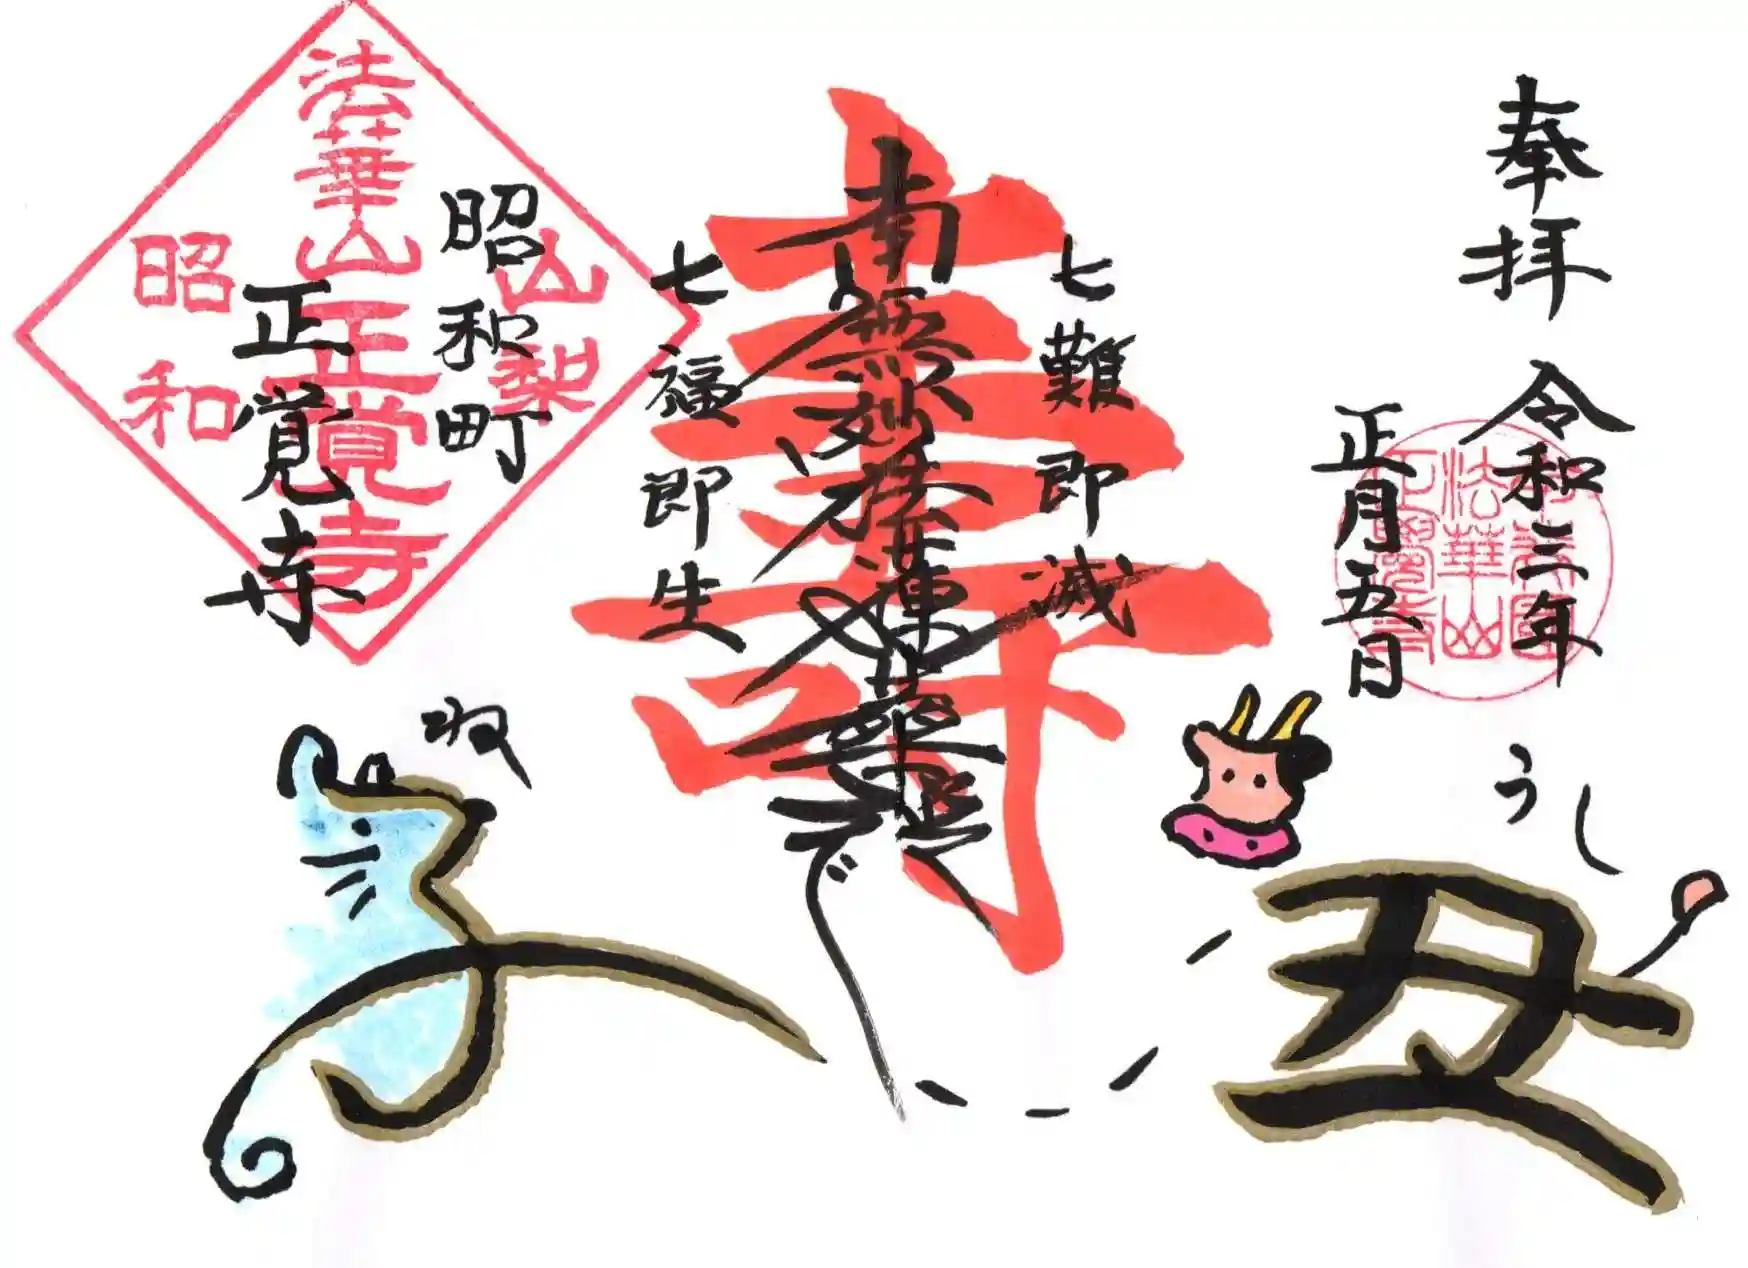 奉拝
令和三年
正月五日
七難即滅
南無妙法蓮華経
寿
七福即生
昭和町
正覚寺
山梨
法華山正覚寺
昭和
法華山
うし
丑
ね
子